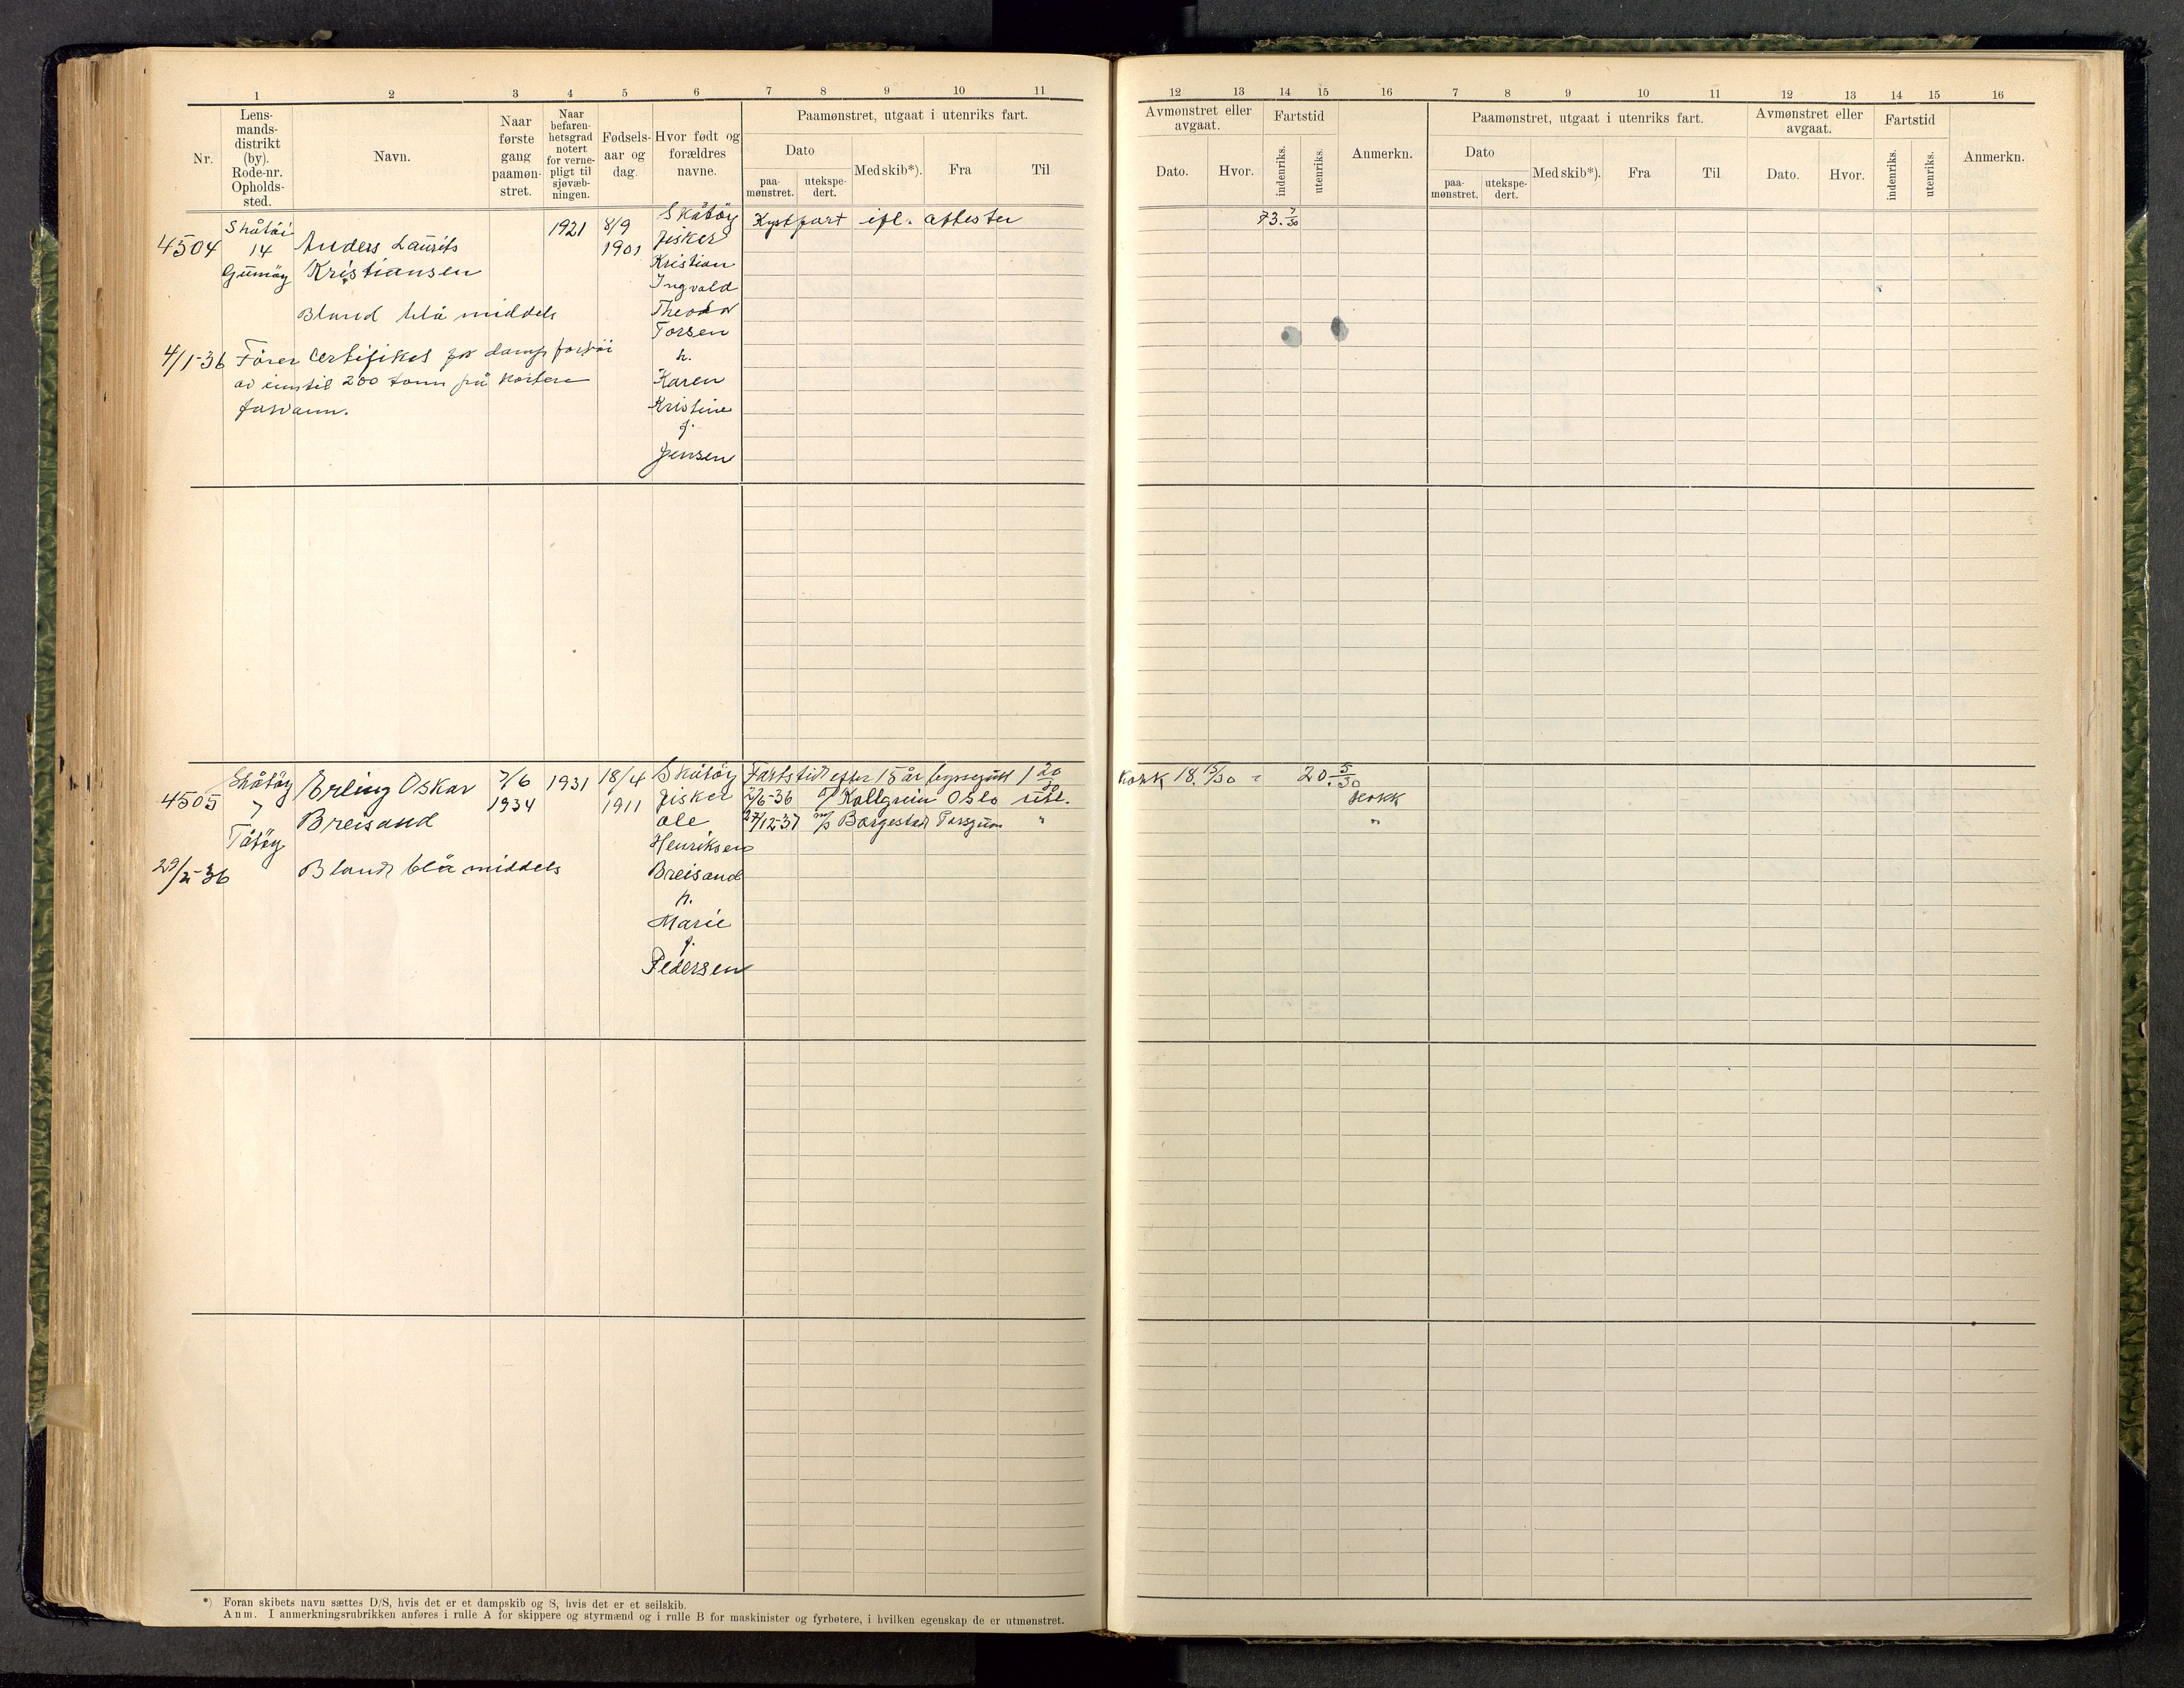 1 2 3 4 5 6 7 8 9 10 11
Nr.
Lens-
mands-
distrikt
(by).
Rode-nr.
Opholds-
sted.
Navn.
Naar
første
gang
paamøn-
stret.
Naar
befaren-
hetsgrad
notert
for verne-
pligt til
sjøvæb-
ningen.
Fødsels-
aar og
dag.
Hvor født og
forældres
navne.
Paamønstret, utgaat i utenriks fart.
Dato
paa-
mønstret.
utekspe-
dert.
Med skib*).
Fra
Til
12 13 14 15 16 7 8 9 10 11 12 13 14 15 16
Avmønstret eller
avgaat.
Dato.
Hvor.
Fartstid
indenriks.
utenriks.
Anmerkn.
Paamønstret, utgaat i utenriks fart.
Dato
paa-
mønstret.
utekspe-
dert.
Med skib*).
Fra
Til
Avmønstret eller
avgaat.
Dato.
Hvor.
Fartstid
indenriks.
utenriks.
Anmerkn.
4504
Skåtöi
14
Gumöy
Anders Laurits
Kristiansen
Blond blå middels
1921
8/9
1901
Skåtöy
fisker
Kristian
Ingvald
Theodor
Torsen
h.
Karen
Kristine
f.
Jensen
Kystfart ifl. attester
73. 7/30
4/1-36 Fører certifikat for damp fartöi
av inntil 200 tonn på kortere
farvann.
4505
Skåtöy
7
Tåtöy
29/5-36
Erling Oskar
Breisand
Blond blå middels
7/6
1934
1931
18/4
1911
Skåtöy
fisker
Ole
Henriksen
Breisand
h.
Marie
f.
Pedersen
Fartstid efter 15 år byssegutt 1 20/30
Kokk 18. 15/30 = 20. 5/30
2/6-36 Kollgrim Oslo utl. Kokk
27/12-37 m/s Borgestad Porsgrun " "
*) Foran skibets navn sættes D/S, hvis det er et dampskib og S, hvis det er et seilskib.
Anm. I anmerkningsrubrikken anføres i rulle A for skippere og styrmænd og i rulle B for maskinister og fyrbøtere, i hvilken egenskap de er utmønstret.